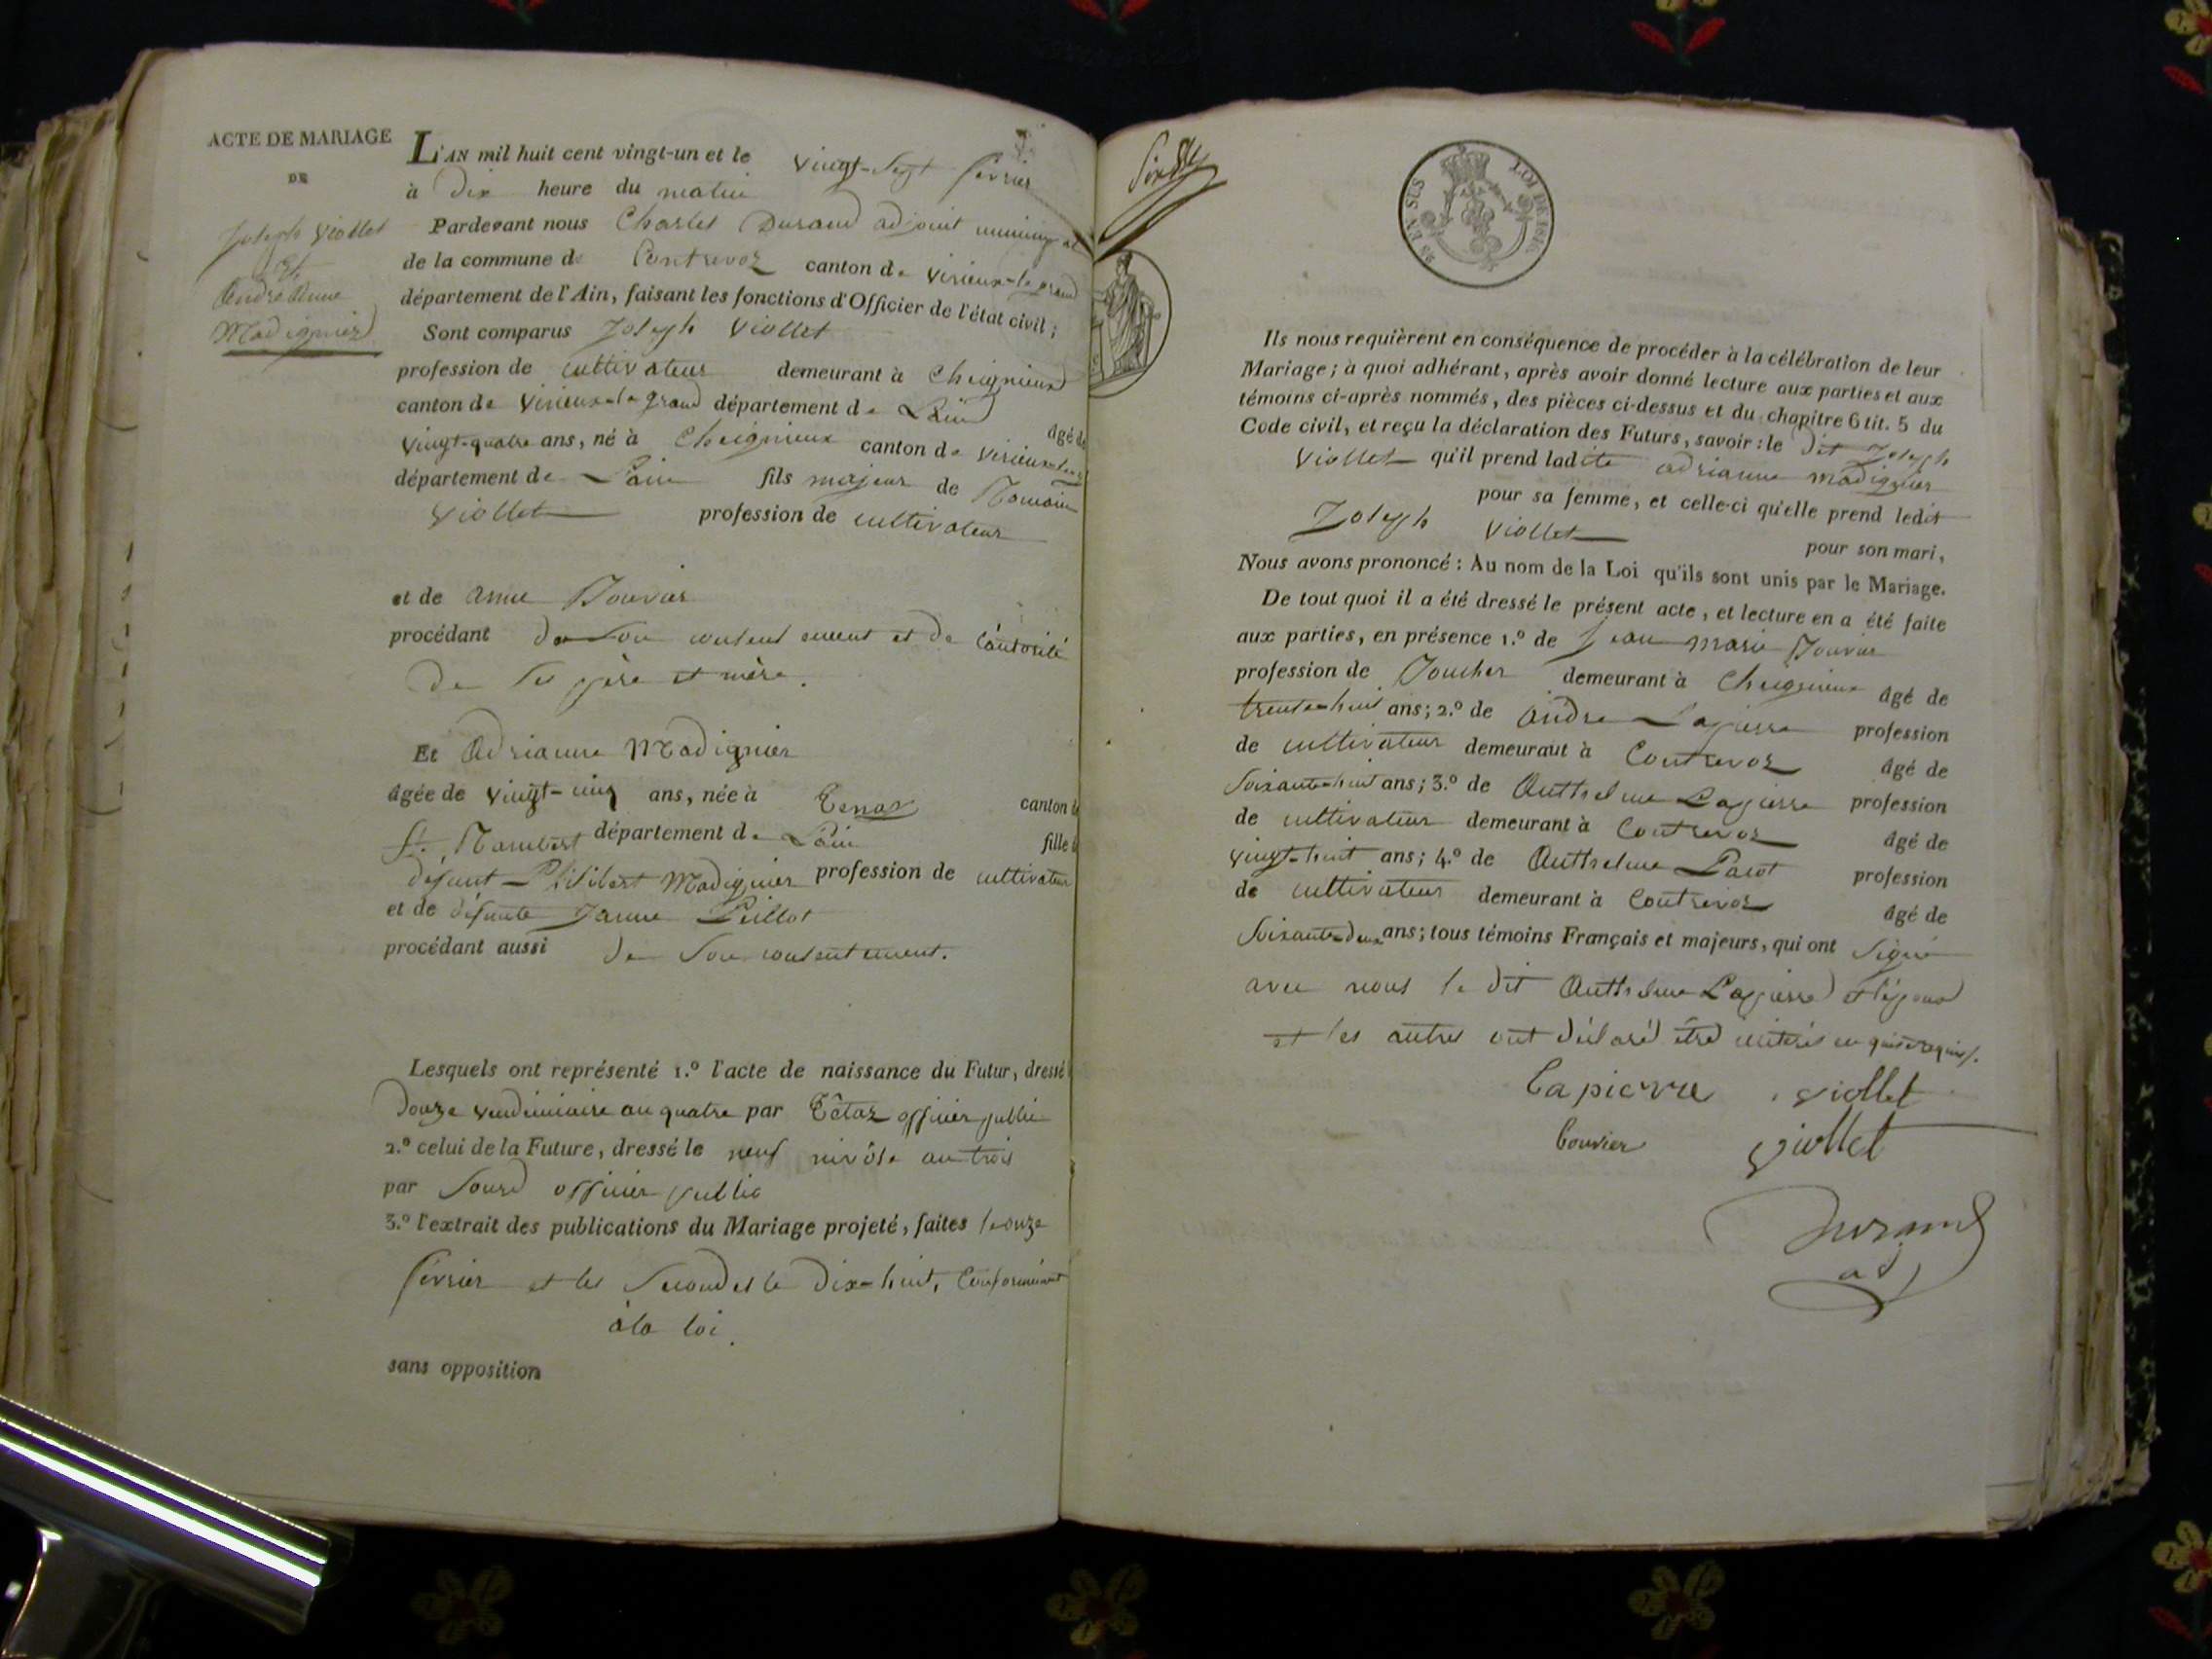 ACTE DE MARIAGE
DE
Joseph Viollet
et
Madignier
L'AN mil huit cent vingt-un et le vingt-sept février
à dix heure du matin
Pardevant nous Charles Durand adjoint municipal
de la commune de Contrevoz canton de virieux-le grand
département de l'Ain, faisant les fonctions d'Officier de l'état civil;
Sont comparus Joseph Viollet
profession de cultivateur demeurant à Cheignieux
canton de Virieux-le grand département de Lain âgé de
vingt-quatre ans, né à Cheignieux canton de virieux
département de Lain fils majeur de Romain
Viollet profession de cultivateur
et de anne Bouvier
procédant de son consentement et de l'autorité
de ses père et mère.
Et Adrianne Madignier
âgée de vingt-cinq ans, née à Tenay canton de
St. Rambert département de Lain fille de
défunt Philibert Madignier profession de cultivateur
et de défunte Janne Peillot
procédant aussi de son consentement.
Lesquels ont représenté 1.º l'acte de naissance du Futur, dressé
douze vendémiaire an quatre par Tétaz officier public
2.º celui de la Future, dressé le neuf nivôse an trois
par Sourd officier public
3.º l'extrait des publications du Mariage projeté, faites le onze
février et les secondes le dix-huit, Conformément
à la loi.
sans opposition
EN SUS
LOI DE 1816
Ils nous requièrent en conséquence de procéder à la célébration de leur
Mariage; à quoi adhérant, après avoir donné lecture aux parties et aux
témoins ci-après nommés, des pièces ci-dessus et du chapitre 6 tit. 5 du
Code civil, et reçu la déclaration des Futurs, savoir: le dit Joseph
Viollet qu'il prend ladite adrianne madignier
pour sa femme, et celle-ci qu'elle prend ledit
Joseph Viollet pour son mari,
Nous avons prononcé: Au nom de la Loi qu'ils sont unis par le Mariage.
De tout quoi il a été dressé le présent acte, et lecture en a été faite
aux parties, en présence 1.º de Jean marie Bouvier
profession de Boucher demeurant à Cheignieux âgé de
trente-huit ans; 2.º de andré Lapierre profession
de cultivateur demeurant à Contrevoz âgé de
soixante-huit ans; 3.º de Anthelme Lapierre profession
de cultivateur demeurant à Contrevoz âgé de
vingt-huit ans; 4.º de Anthelme Pacot profession
de cultivateur demeurant à Contrevoz âgé de
soixante-deux ans; tous témoins Français et majeurs, qui ont signé
avec nous le dit Anthelme Lapierre et l'époux
et les autres ont déclaré être illitérés
Lapierre viollet
bouvier viollet
Durand
adj